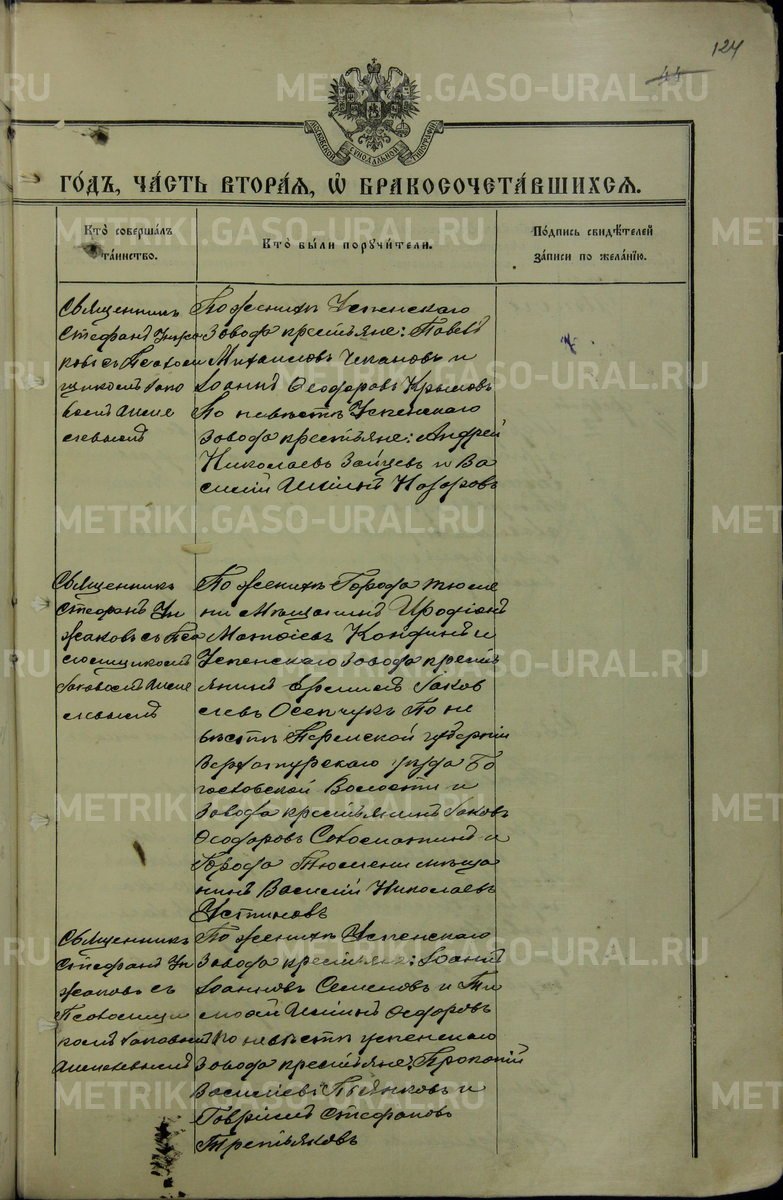 124
44
МОСКОВСКОЙ СѴНОДАЛЬНОЙ ТИПОГРАФІИ
ГОДЪ, ЧАСТЬ ВТОРАЯ, Ѡ БРАКОСОЧЕТАВШИХСЯ.
Кто совершалъ
таинство.
Кто были поручители.
Подпись свидѣтелей
записи по желанію.
Священникъ
Стефанъ Унжа
ковъ съ Псалом
щикомъ Іако
вомъ
По женихѣ Успенскаго
завода крестьяне: Павелъ
Михаиловъ Чкановъ и
Іоаннъ Ѳеодоровъ Крымовъ
По невѣстѣ Успенскаго
завода крестьяне: Андрей
Николаевъ Зайцевъ и Ва
силій Назаровъ
Священникъ
Стефанъ Ун
жаковъ съ Пса
ломщикомъ
Іаковомъ
По женихѣ Города Тюме
ни Мѣщанинъ Иродіонъ
Матѳіевъ и
Успенскаго завода кресть
янинъ Іаков
левъ Осепчукъ По не
вѣстѣ Пермской губерніи
Верхотурскаго уѣзда Бо
гословской Волости и
завода крестьянинъ Іаковъ
Ѳеодоровъ и
Города Тюмени мѣща
нинъ Василій Николаевъ
Устиновъ
Священникъ
Стефанъ Ун
жаковъ съ
Псаломщи
комъ Іаковомъ
По женихѣ Успенскаго
завода крестьяне: Іоаннъ
Іоанновъ Семеновъ и Ти
моѳей Ѳедоровъ
По невѣстѣ успенскаго
завода крестьяне: Прокопій
Василіевъ Пьянковъ и
Гавріилъ Стефановъ
Третьяковъ
METRIKI.GASO-URAL.RU